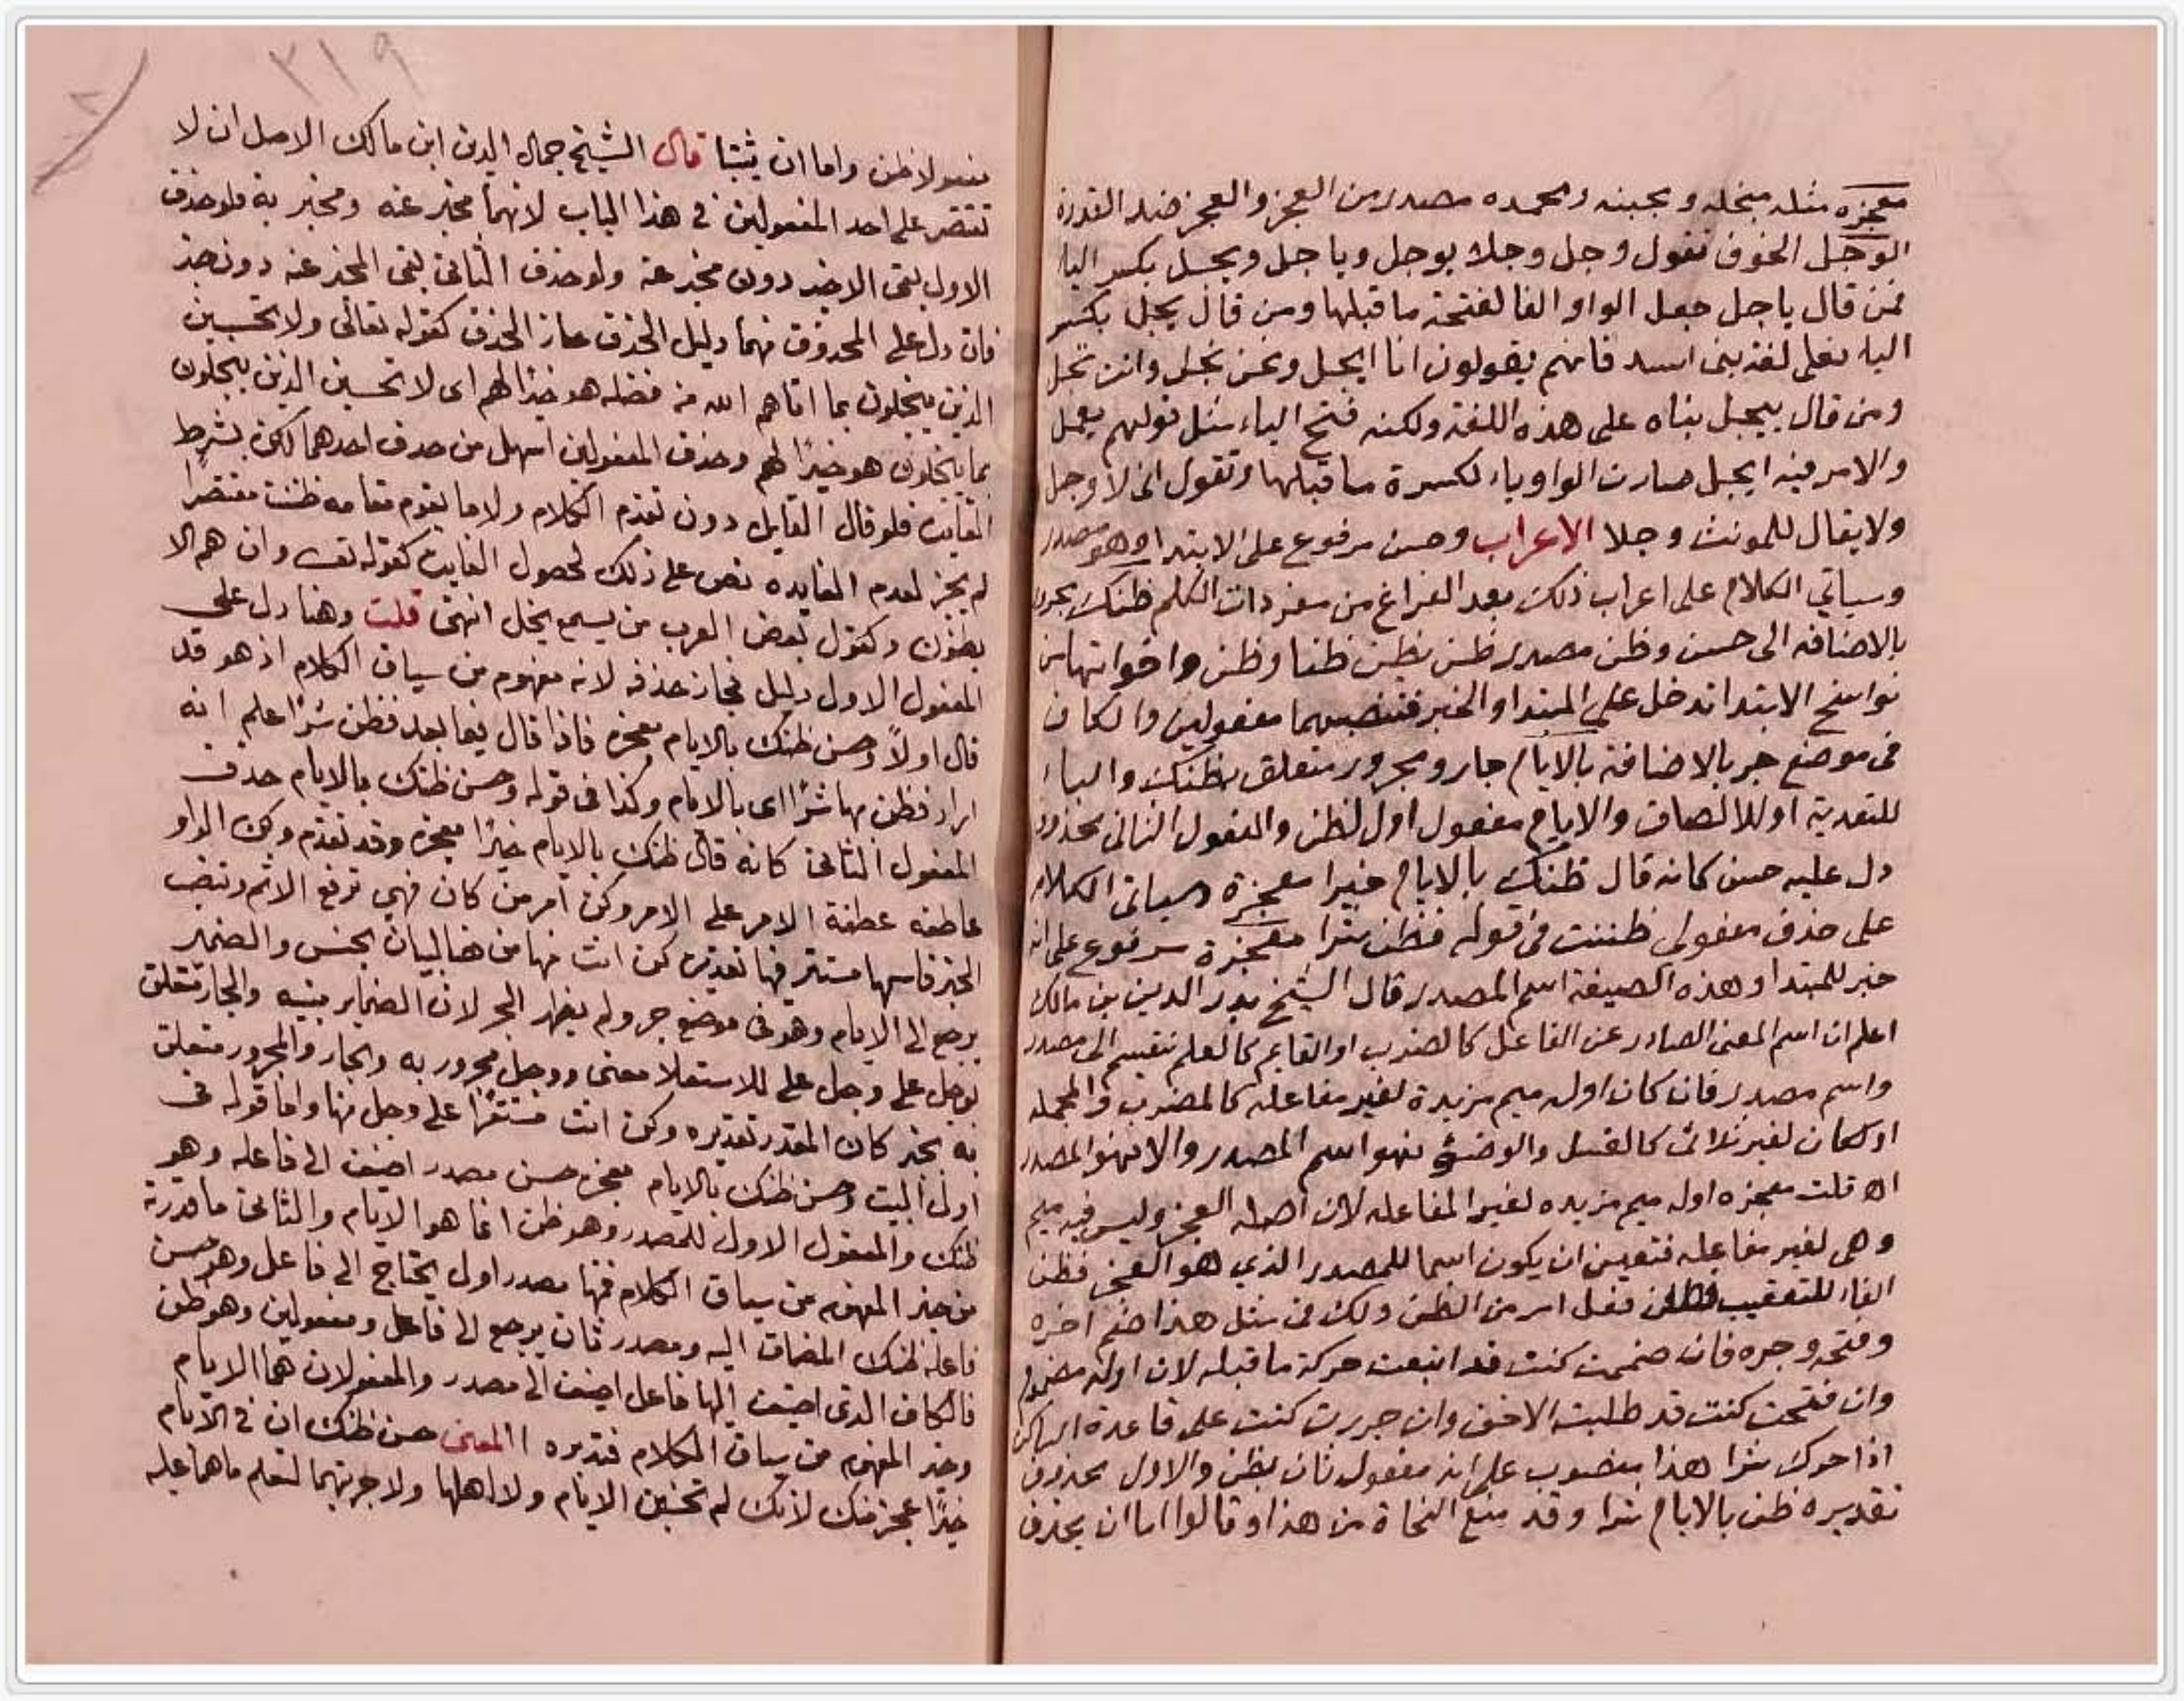 معجزه مثله مبخله ومجبنه ومحمده مصدر من العجز والعجز ضد القدرة
الوجل الخوف تقول وجل وجلا يوجل وياجل وييجل بكسر اليا
فمن قال ياجل جعل الواو الفا لفتحة ما قبلها ومن قال ييجل بكسر
اليا فعلى لغة بنى اسد فانهم يقولون انا ايجل ونحن نجل وانت تجل
ومن قال ييجل بناه على هذه اللغة ولكنه فتح الياء مثل قولهم يعلم
والامر فيه ايجل صارت الواو ياء لكسرة ما قبلها وتقول انى لاوجل
ولا يقال للمونث وجلا الاعراب وحسن مرفوع على الابتدا وهو مصدر
وسياتي الكلام على اعراب ذلك بعد الفراغ من مفردات الكلم ظنك مجرور
بالاضافه الى حسن وظن مصدر ظن يظن ظنا وظن واخواتها من
نواسخ الابتدا تدخل على المبتدا والخبر فتنصبهما مفعولين والكاف
فى موضع جر بالاضافة بالايام جار ومجرور متعلق بظنك والباء
للتعدية او للالصاق والايام مفعول اول لظن والمفعول الثانى محذوف
دل عليه حسن كانه قال ظنك بالايام خيرا معجزة وسياتى الكلام
على حذف مفعولى ظننت فى قوله فظن شرا معجزة مرفوع على انه
خبر للمبتدا وهذه الصيغة اسم المصدر قال الشيخ بدر الدين بن مالك
اعلم ان اسم المعنى الصادر عن الفاعل كالضرب او القايم كالعلم ينقسم الى مصدر
واسم مصدر فان كان اوله ميم مزيدة لغير مفاعله كالمضرب والمحمله
او كان لغير ثلاثى كالغسل والوضوء فهو اسم المصدر والا فهو المصدر
اه قلت معجزه اوله ميم مزيده لغير المفاعله لان اصله العجز وليس فيه ميم
وهى لغير مفاعله فتعين ان يكون اسما للمصدر الذي هو العجز فظن
الفاء للتعقيب فظن فعل امر من الظن ولك فى مثل هذا ضم اخره
وفتحه وجره فان ضممت كنت قد اتبعت حركة ما قبله لان اوله مضموم
وان فتحت كنت قد طلبت الاخف وان جررت كنت على قاعدة الساكن
اذا حرك شرا هذا منصوب على انه مفعول ثان بظن والاول محذوف
تقديره ظن بالايام شرا وقد منع النحاة من هذا وقالوا اما ان يحذف
٣١٩
مفعولا ظن واما ان يثبتا قال الشيخ جمال الدين ابن مالك الاصل ان لا
تقتصر على احد المفعولين فى هذا الباب لانهما مخبر عنه ومخبر به فلو حذف
الاول بقى الاخير دون مخبر عنه ولو حذف الثانى بقى المخبر عنه دون خبر
فان دل على المحذوف منهما دليل الحذف جاز الحذف كقوله تعالى ولا تحسبن
الذين يبخلون بما اتاهم الله من فضله هو خيرا لهم اى لا تحسبن الذين يبخلون
بما يبخلون هو خيرًا لهم وحذف المفعولين اسهل من حذف احدهما لكن بشرط
الفايده فلو قال القايل دون تقدم الكلام ولا ما يقوم مقامه ظننت مقتصرا
لم يجز لعدم الفايده نص على ذلك لحصول الفايده كقوله تعـ وان هم الا
يظنون وكقول بعض العرب من يسمع يخل انتهى قلت وهنا دل على
المفعول الاول دليل فجاز حذفه لانه مفهوم من سياق الكلام اذ هو قد
قال اولاً وحسن ظنك بالايام معجزه فاذا قال فيما بعد فظن شرًا علم انه
اراد فظن بها شرًا اى بالايام وكذا فى قوله وحسن ظنك بالايام حذف
المفعول الثانى كانه قال ظنك بالايام خيرًا معجزه وقد تقدم وكن الواو
عاطفه عطفت الامر على الامر وكن امر من كان فهى ترفع الاسم وتنصب
الخبر فاسمها مستتر فيها تقديره كن انت منها من هنا لبيان الجنس والضمير
يرجع الى الايام وهو فى موضع جر ولم يظهر الجر لان الضماير مبنيه والجار متعلق
بوجل على وجل على للاستعلا معنى ووجل مجرور به والجار والمجرور متعلق
به بخبر كان المقدر تقديره وكن انت مستقرًا على وجل منها واما قوله فى
اول البيت وحسن ظنك بالايام معجزه حسن مصدر اضيف الى فاعله وهو
ظنك والمفعول الاول للمصدر وهو ظن انما هو الايام والثانى ما قدرته
من خير المفهوم من سياق الكلام فهنا مصدر اول يحتاج الى فاعل وهو حسن
فاعله ظنك المضاف اليه ومصدر ثان يرجع الى فاعل ومفعولين وهو ظن
فالكاف الذى اضيف اليها فاعل اضيف الى مصدر والمفعولان هما الايام
وخير المفهوم من سياق الكلام فتدبره المعنى حسن ظنك ان فى الايام
خيرًا عجز منك لانك لم تختبر الايام ولا اهلها ولا جربتهما لتعلم ما هما عليه